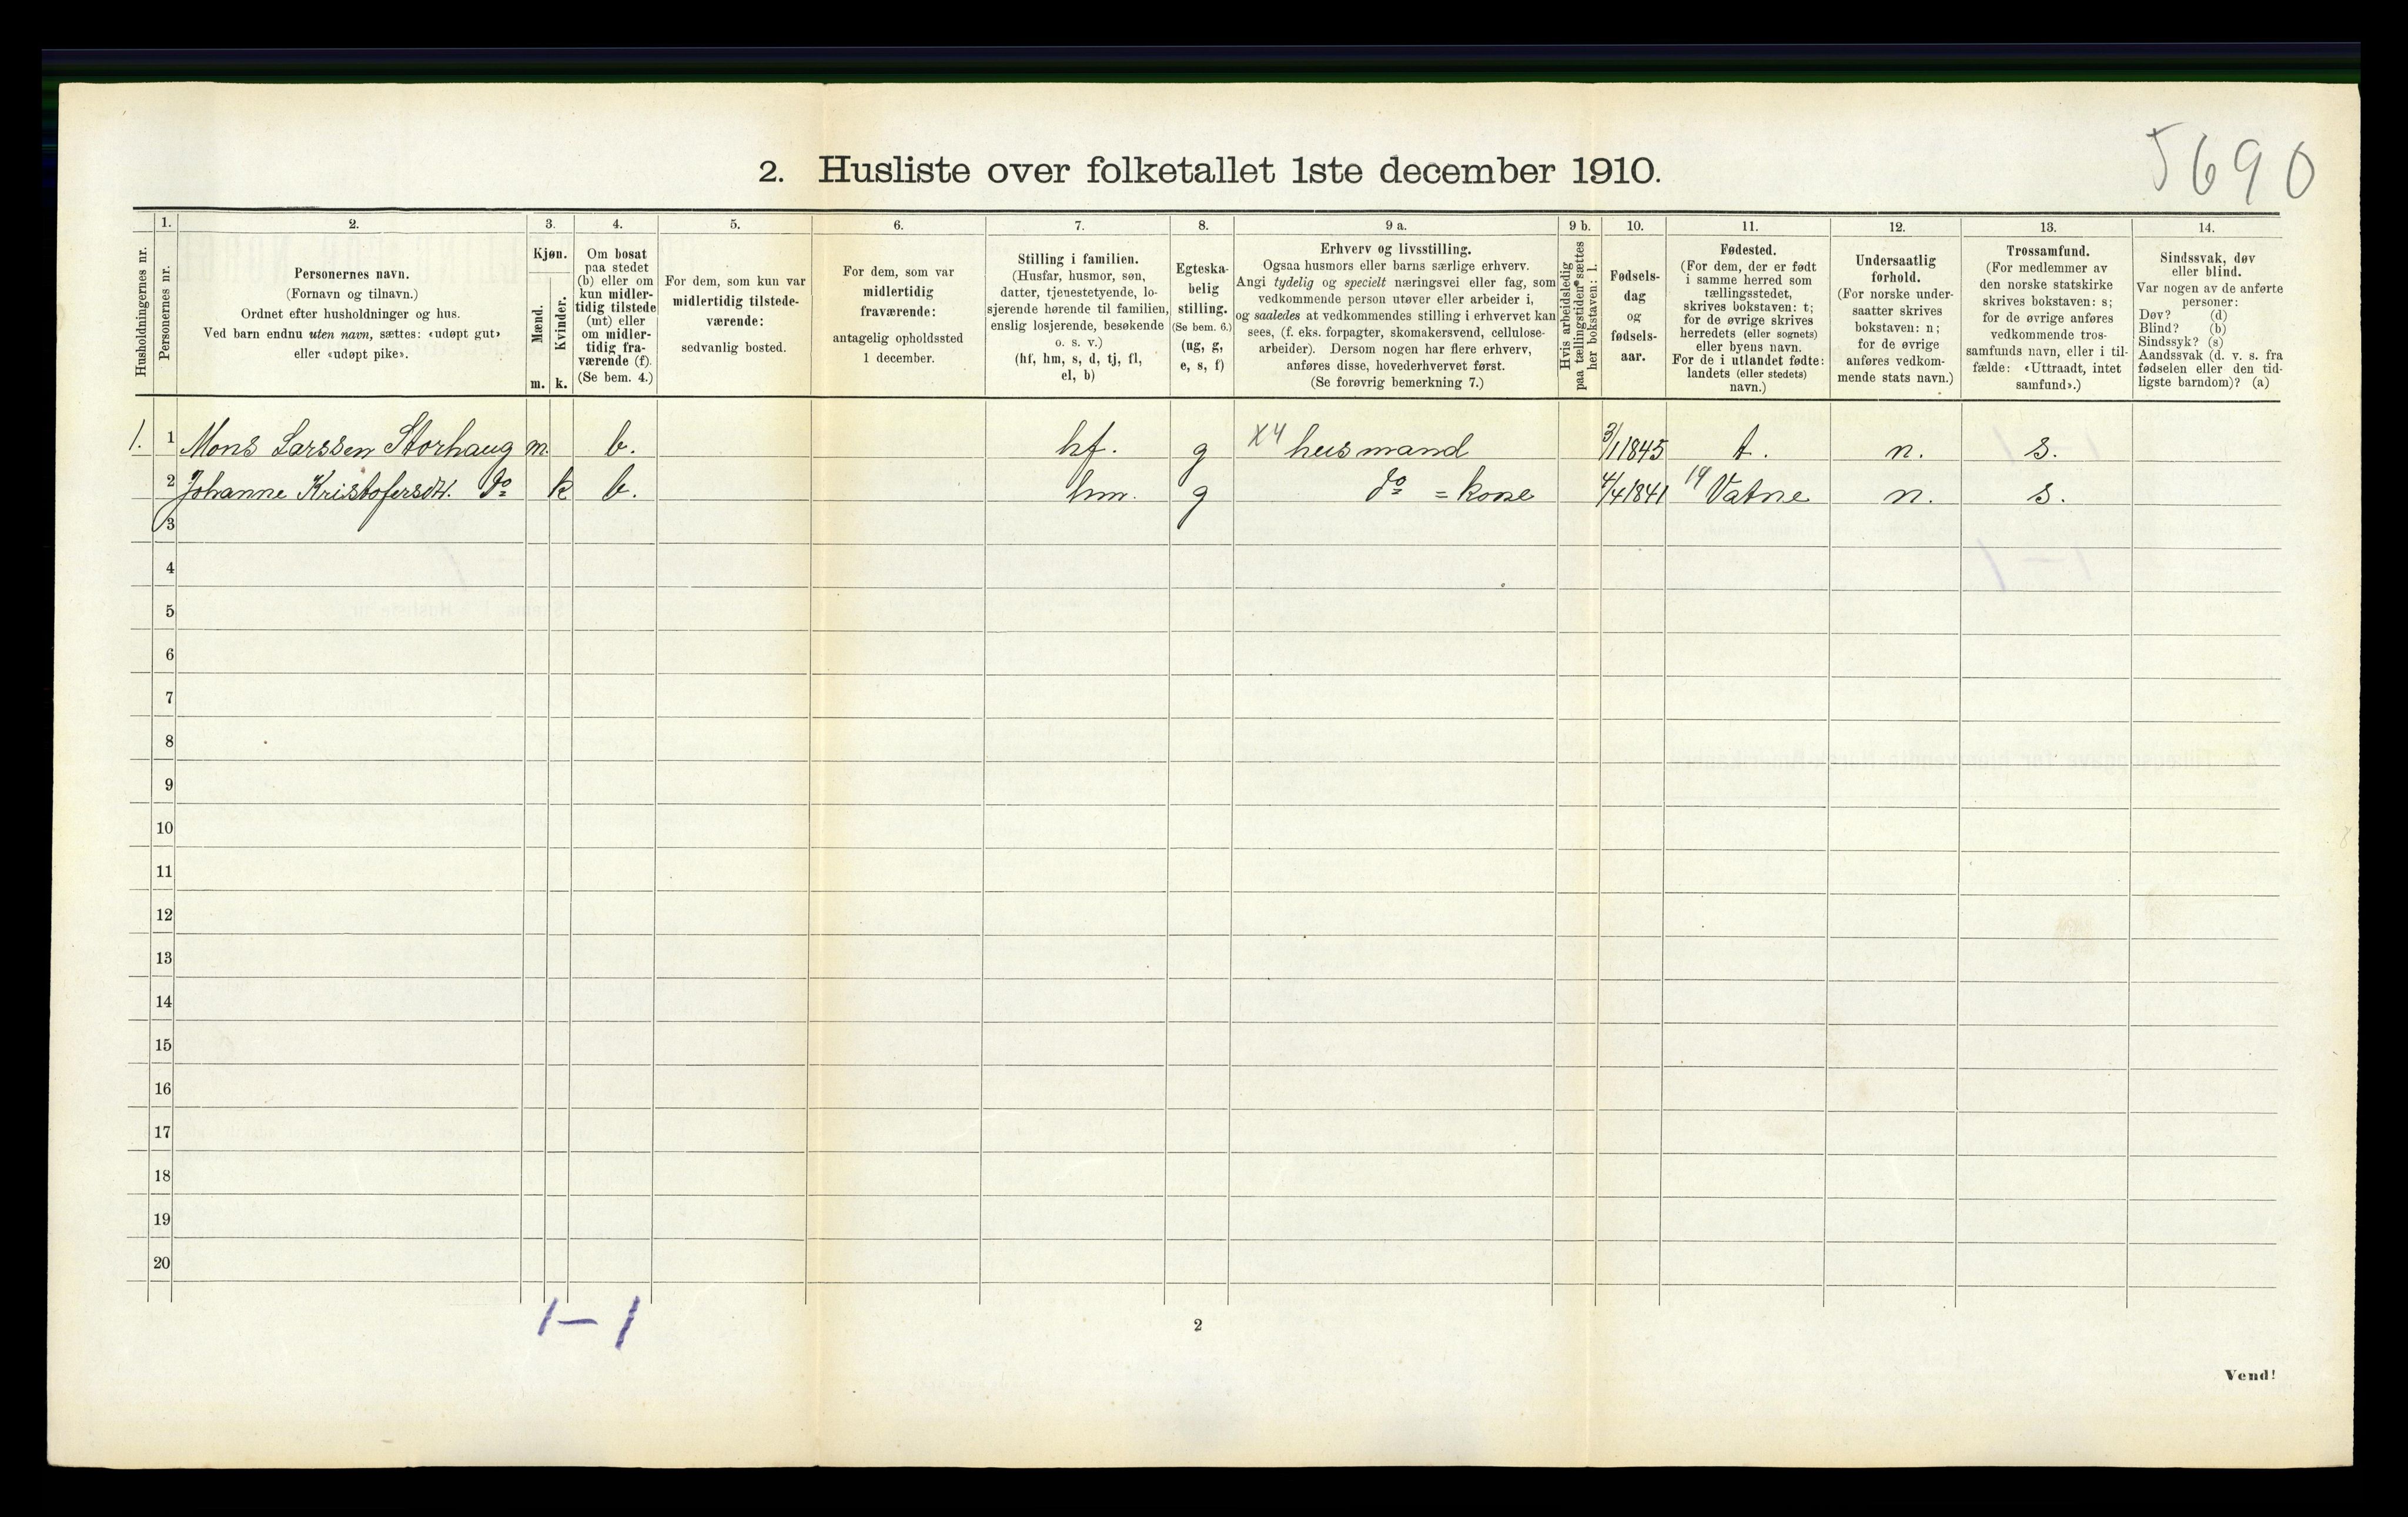 5690
2. Husliste over folketallet 1ste december 1910.
Husholdningernes nr.
1.
Personernes nr.
2.
Personernes navn.
(Fornavn og tilnavn.)
Ordnet efter husholdninger og hus.
Ved barn endnu uten navn, sættes: «udøpt gut»
eller «udøpt pike».
3.
Kjøn.
Mænd.
m.
Kvinder.
k.
4.
Om bosat
paa stedet
(b) eller om
kun midler-
tidig tilstede
(mt) eller
om midler-
tidig fra-
værende (f).
(Se bem. 4.)
5.
For dem, som kun var
midlertidig tilstede-
værende:
sedvanlig bosted.
6.
For dem, som var
midlertidig
fraværende:
antagelig opholdssted
1 december.
7.
Stilling i familien.
(Husfar, husmor, søn,
datter, tjenestetyende, lo-
sjerende hørende til familien,
enslig losjerende, besøkende
o. s. v.)
(hf, hm, s, d, tj, fl,
el, b)
8.
Egteska-
belig
stilling.
(Se bem. 6.)
(ug, g,
e, s, f)
9 a.
Erhverv og livsstilling.
Ogsaa husmors eller barns særlige erhverv.
Angi tydelig og specielt næringsvei eller fag, som
vedkommende person utøver eller arbeider i,
og saaledes at vedkommendes stilling i erhvervet kan
sees, (f. eks. forpagter, skomakersvend, cellulose-
arbeider). Dersom nogen har flere erhverv,
anføres disse, hovederhvervet først.
(Se forøvrig bemerkning 7.)
9 b.
Hvis arbeidsledig
paa tællingstiden sættes
her bokstaven: l.
10.
Fødsels-
dag
og
fødsels-
aar.
11.
Fødested.
(For dem, der er født
i samme herred som
tællingsstedet,
skrives bokstaven: t;
for de øvrige skrives
herredets (eller sognets)
eller byens navn.
For de i utlandet fødte:
landets (eller stedets)
navn.)
12.
Undersaatlig
forhold.
(For norske under-
saatter skrives
bokstaven: n;
for de øvrige
anføres vedkom-
mende stats navn.)
13.
Trossamfund.
(For medlemmer av
den norske statskirke
skrives bokstaven: s;
for de øvrige anføres
vedkommende tros-
samfunds navn, eller i til-
fælde: «Uttraadt, intet
samfund».)
14.
Sindssvak, døv
eller blind.
Var nogen av de anførte
personer:
Døv? (d)
Blind? (b)
Sindssyk? (s)
Aandssvak (d. v. s. fra
fødselen eller den tid-
ligste barndom)? (a)
1. 1 Mons Larssen Storhaug m. b. hf. g X4 husmand 3/1 1845 t. n. s.
2 Johanne Kristofersdtr. do k b. hm. g do = kone 4/4 1841 19 Vatne n. s.
3
4
5
6
7
8
9
10
11
12
13
14
15
16
17
18
19
20
1 - 1
2
Vend!